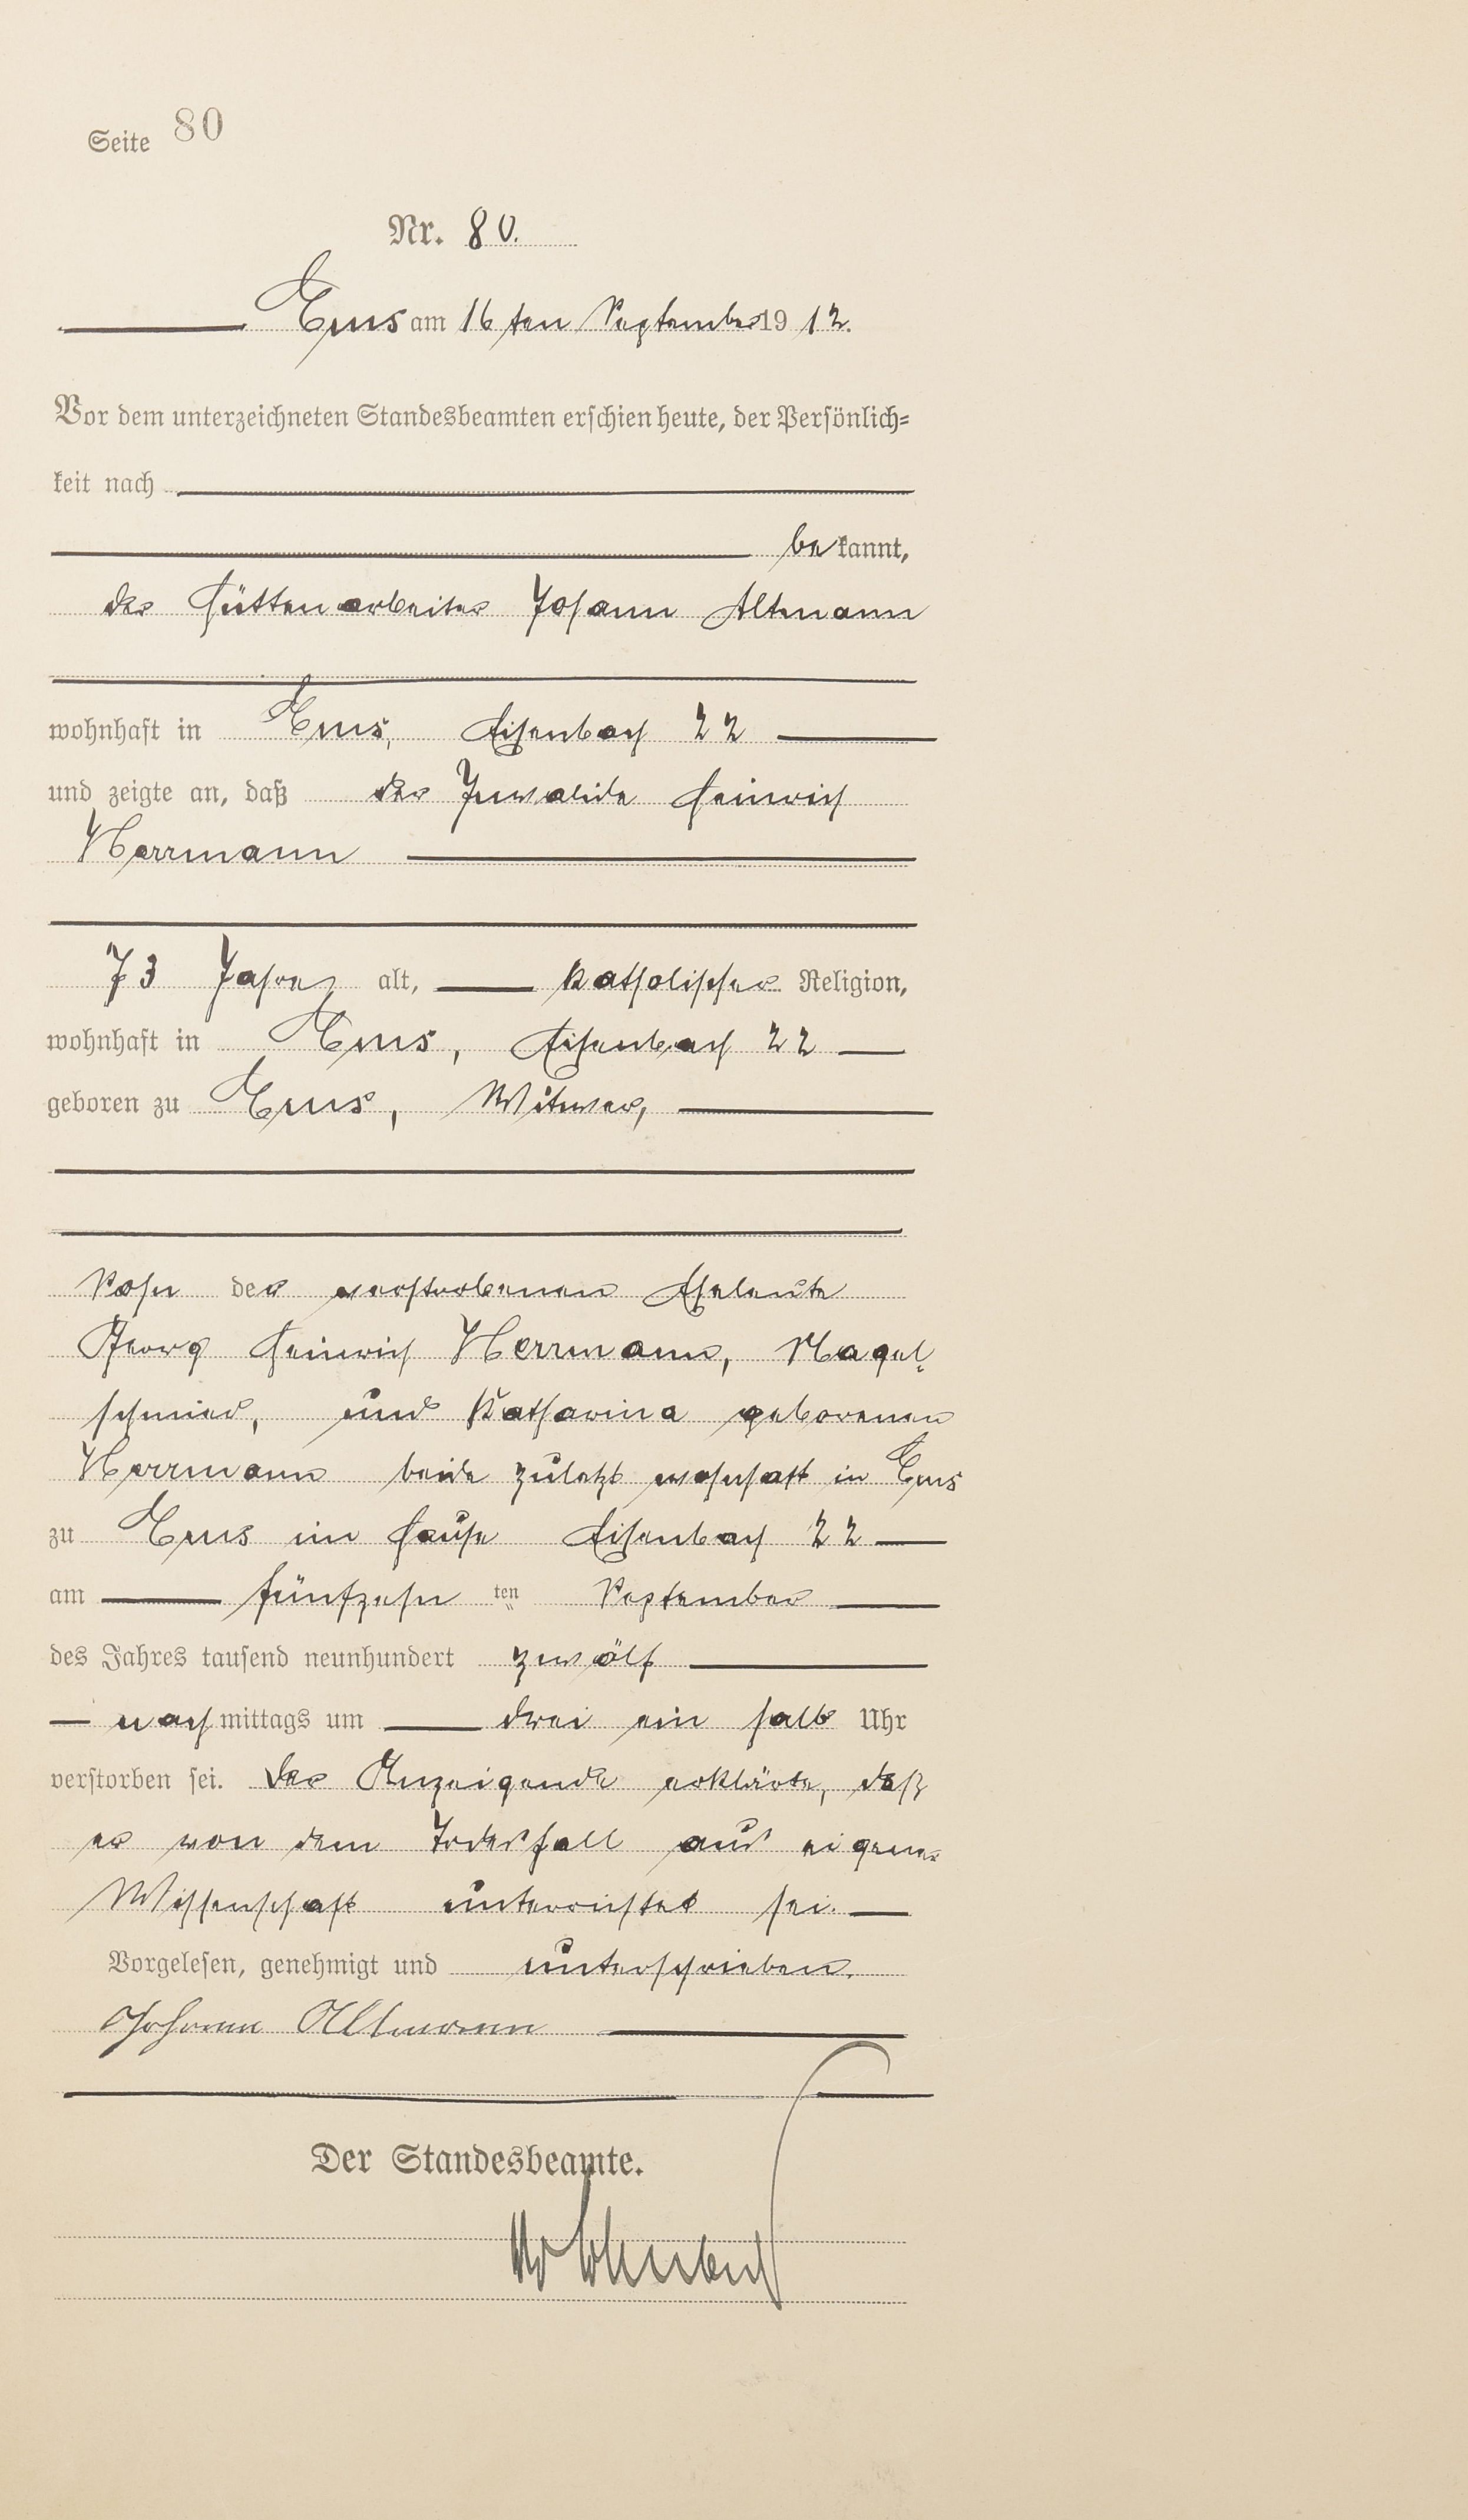 Seite 80
Nr. 80.
Ems am 16ten September 1912.
Vor dem unterzeichneten Standesbeamten erschien heute, der Persönlich=
keit nach
bekannt,
der Hüttenarbeiter Johann Altmann
wohnhaft in Ems, Eisenbach 22
und zeigte an, daß der Invalide Heinrich
Herrmann
73 Jahre, alt, katholischer Religion,
wohnhaft in Ems, Eisenbach 22
geboren zu Ems, Witwer,
Sohn der verstorbenen Eheleute
Georg Heinrich Herrmann, Nagel-
schmied, und Katharina geborenen
Herrmann beide zuletzt wohnhaft in Ems
zu Ems im Hause Eisenbach 22
am fünfzehn ten September
des Jahres tausend neunhundert zwölf
nachmittags um drei ein halb Uhr
verstorben sei. Der Anzeigende erklärte, daß
er von dem Todesfall aus eigener
Wissenschaft unterrichtet sei.
Vorgelesen, genehmigt und unterschrieben.
Johann Altmann
Der Standesbeamte.